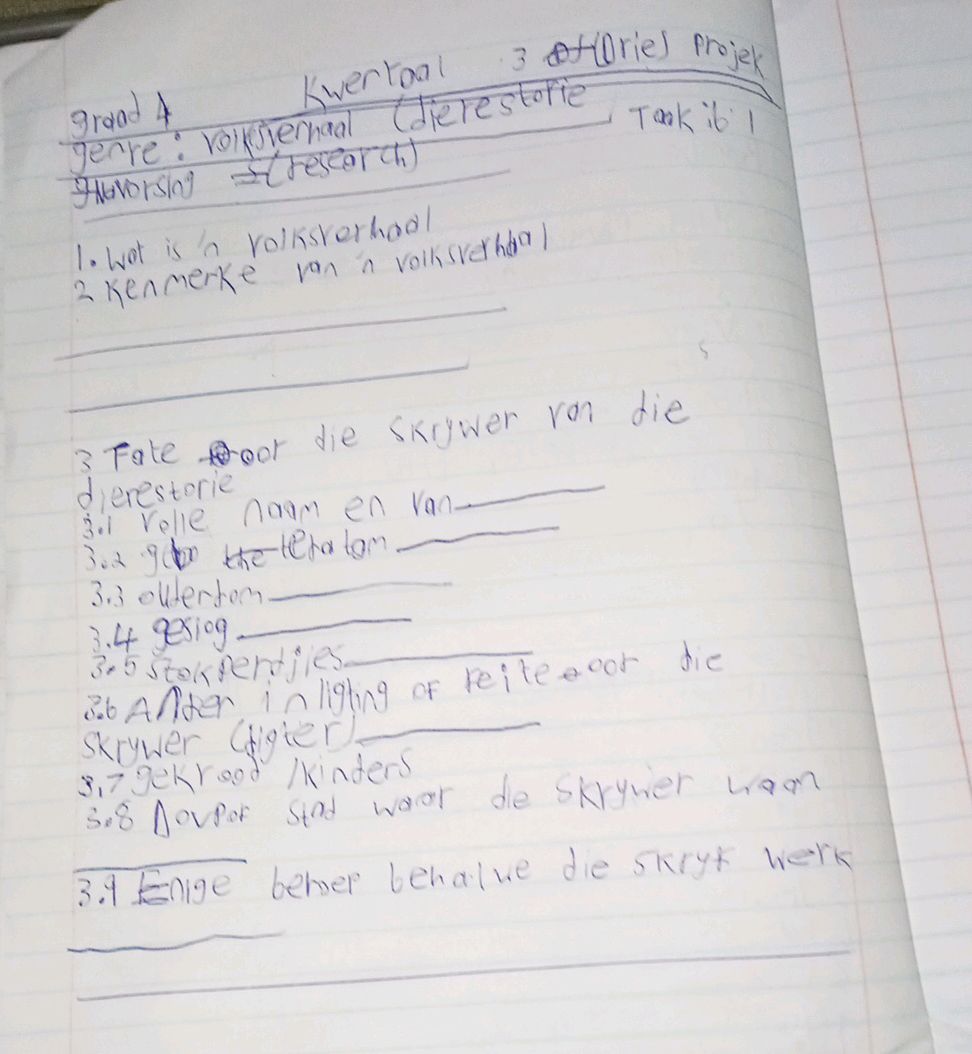 graad 4 Kwertaal 3 (Drie) Projek
genre: volksverhaal (dierestorie Taak ib 1
navorsing =(research)
1. Wat is 'n volksverhaal
2 Kenmerke van 'n volksverhaal
3 Fate oor die skrywer van die
dierestorie
3.1 volle naam en van
3.2
3.3 ouderdom
3.4 geslag
3.5 Stokperdjies
3.6 Ander inligting of feite oor die
Skrywer (digter)
3.7 gekrood /kinders
3.8 stad waar die Skrywer waan
3.9 Enige beroep behalve die skryf werk